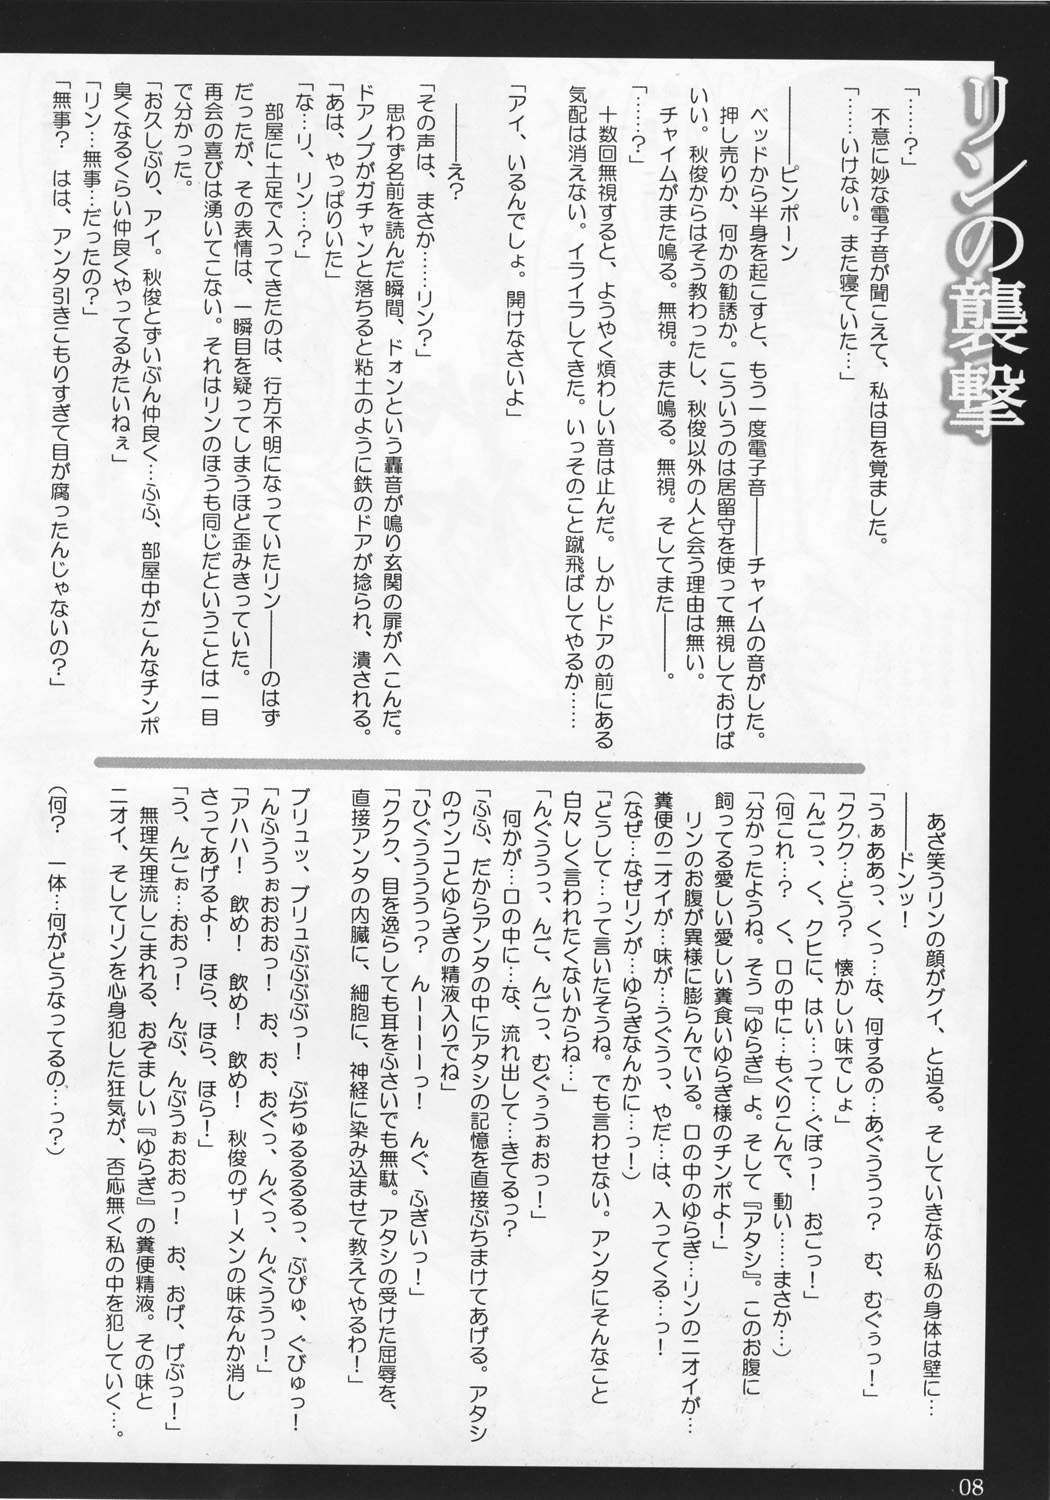 リンの襲撃
「……？」
不意に妙な電子音が聞こえて、私は目を覚ました。
「……いけない。また寝ていた…」
――――ピンポーン
ベッドから半身を起こすと、もう一度電子音――――チャイムの音がした。
押し売りか、何かの勧誘か。こういうのは居留守を使って無視しておけば
いい。秋俊からはそう教わったし、秋俊以外の人と会う理由は無い。
チャイムがまた鳴る。無視。また鳴る。無視。そしてまた――――。
「……？」
十数回無視すると、ようやく煩わしい音は止んだ。しかしドアの前にある
気配は消えない。イライラしてきた。いっそのこと蹴飛ばしてやるか……
「アイ、いるんでしょ。開けなさいよ」
――――え？
「その声は、まさか……リン？」
思わず名前を読んだ瞬間、ドォンという轟音が鳴り玄関の扉がへこんだ。
ドアノブがガチャンと落ちると粘土のように鉄のドアが捻られ、潰される。
「あは、やっぱりいた」
「な…リ、リン…？」
部屋に土足で入ってきたのは、行方不明になっていたリン――――のはず
だったが、その表情は、一瞬目を疑ってしまうほど歪みきっていた。
再会の喜びは湧いてこない。それはリンのほうも同じだということは一目
で分かった。
「お久しぶり、アイ。秋俊とずいぶん仲良く…ふふ、部屋中がこんなチンポ
臭くなるくらい仲良くやってるみたいねぇ」
「リン…無事…だったの？」
「無事？　はは、アンタ引きこもりすぎて目が腐ったんじゃないの？」
あざ笑うリンの顔がグイ、と迫る。そしていきなり私の身体は壁に…
――――ドンッ！
「うぁああっ、くっ…な、何するの…あぐううっ？　む、むぐぅっ！」
「ククク…どう？　懐かしい味でしょ」
「んごっ、く、クヒに、はい…って…ぐぼっ！　おごっ！」
（何これ…？　く、口の中に…もぐりこんで、動い……まさか…）
「分かったようね。そう『ゆらぎ』よ。そして『アタシ』。このお腹に
飼ってる愛しい愛しい糞食いゆらぎ様のチンポよ！」
リンのお腹が異様に膨らんでいる。口の中のゆらぎ…リンのニオイが…
糞便のニオイが…味が…うぐうっ、やだ…は、入ってくる…っ！
（なぜ…なぜリンが…ゆらぎなんかに…っ！）
「どうして…って言いたそうね。でも言わせない。アンタにそんなこと
白々しく言われたくないからね…」
「んぐううっ、んご、んごっ、むぐぅうぉおっ！」
何かが…口の中に…な、流れ出して…きてるっ？
「ふふ、だからアンタの中にアタシの記憶を直接ぶちまけてあげる。アタシ
のウンコとゆらぎの精液入りでね」
「ひぐうううっ？　んーーーーっ！　んぐ、ふぎいっ！」
「ククク、目を逸らしても耳をふさいでも無駄。アタシの受けた屈辱を、
直接アンタの内臓に、細胞に、神経に染み込ませて教えてやるわ！」
ブリュッ、ブリュぶぶぶぶっ！　ぶぢゅるるるるっ、ぶぴゅ、ぐびゅっ！
「んふううぉおおおっ！　お、お、おぐっ、んぐっ、んぐううっ！」
「アハハ！　飲め！　飲め！　飲め！　秋俊のザーメンの味なんか消し
さってあげるよ！　ほら、ほら、ほら！」
「う、んごぉ…おおっ！　んぷ、んぶうぉおおっ！　お、おげ、げぶっ！」
無理矢理流しこまれる、おぞましい『ゆらぎ』の糞便精液。その味と
ニオイ、そしてリンを心身犯した狂気が、否応無く私の中を犯していく…。
（何？　一体…何がどうなってるの…っ？）
08